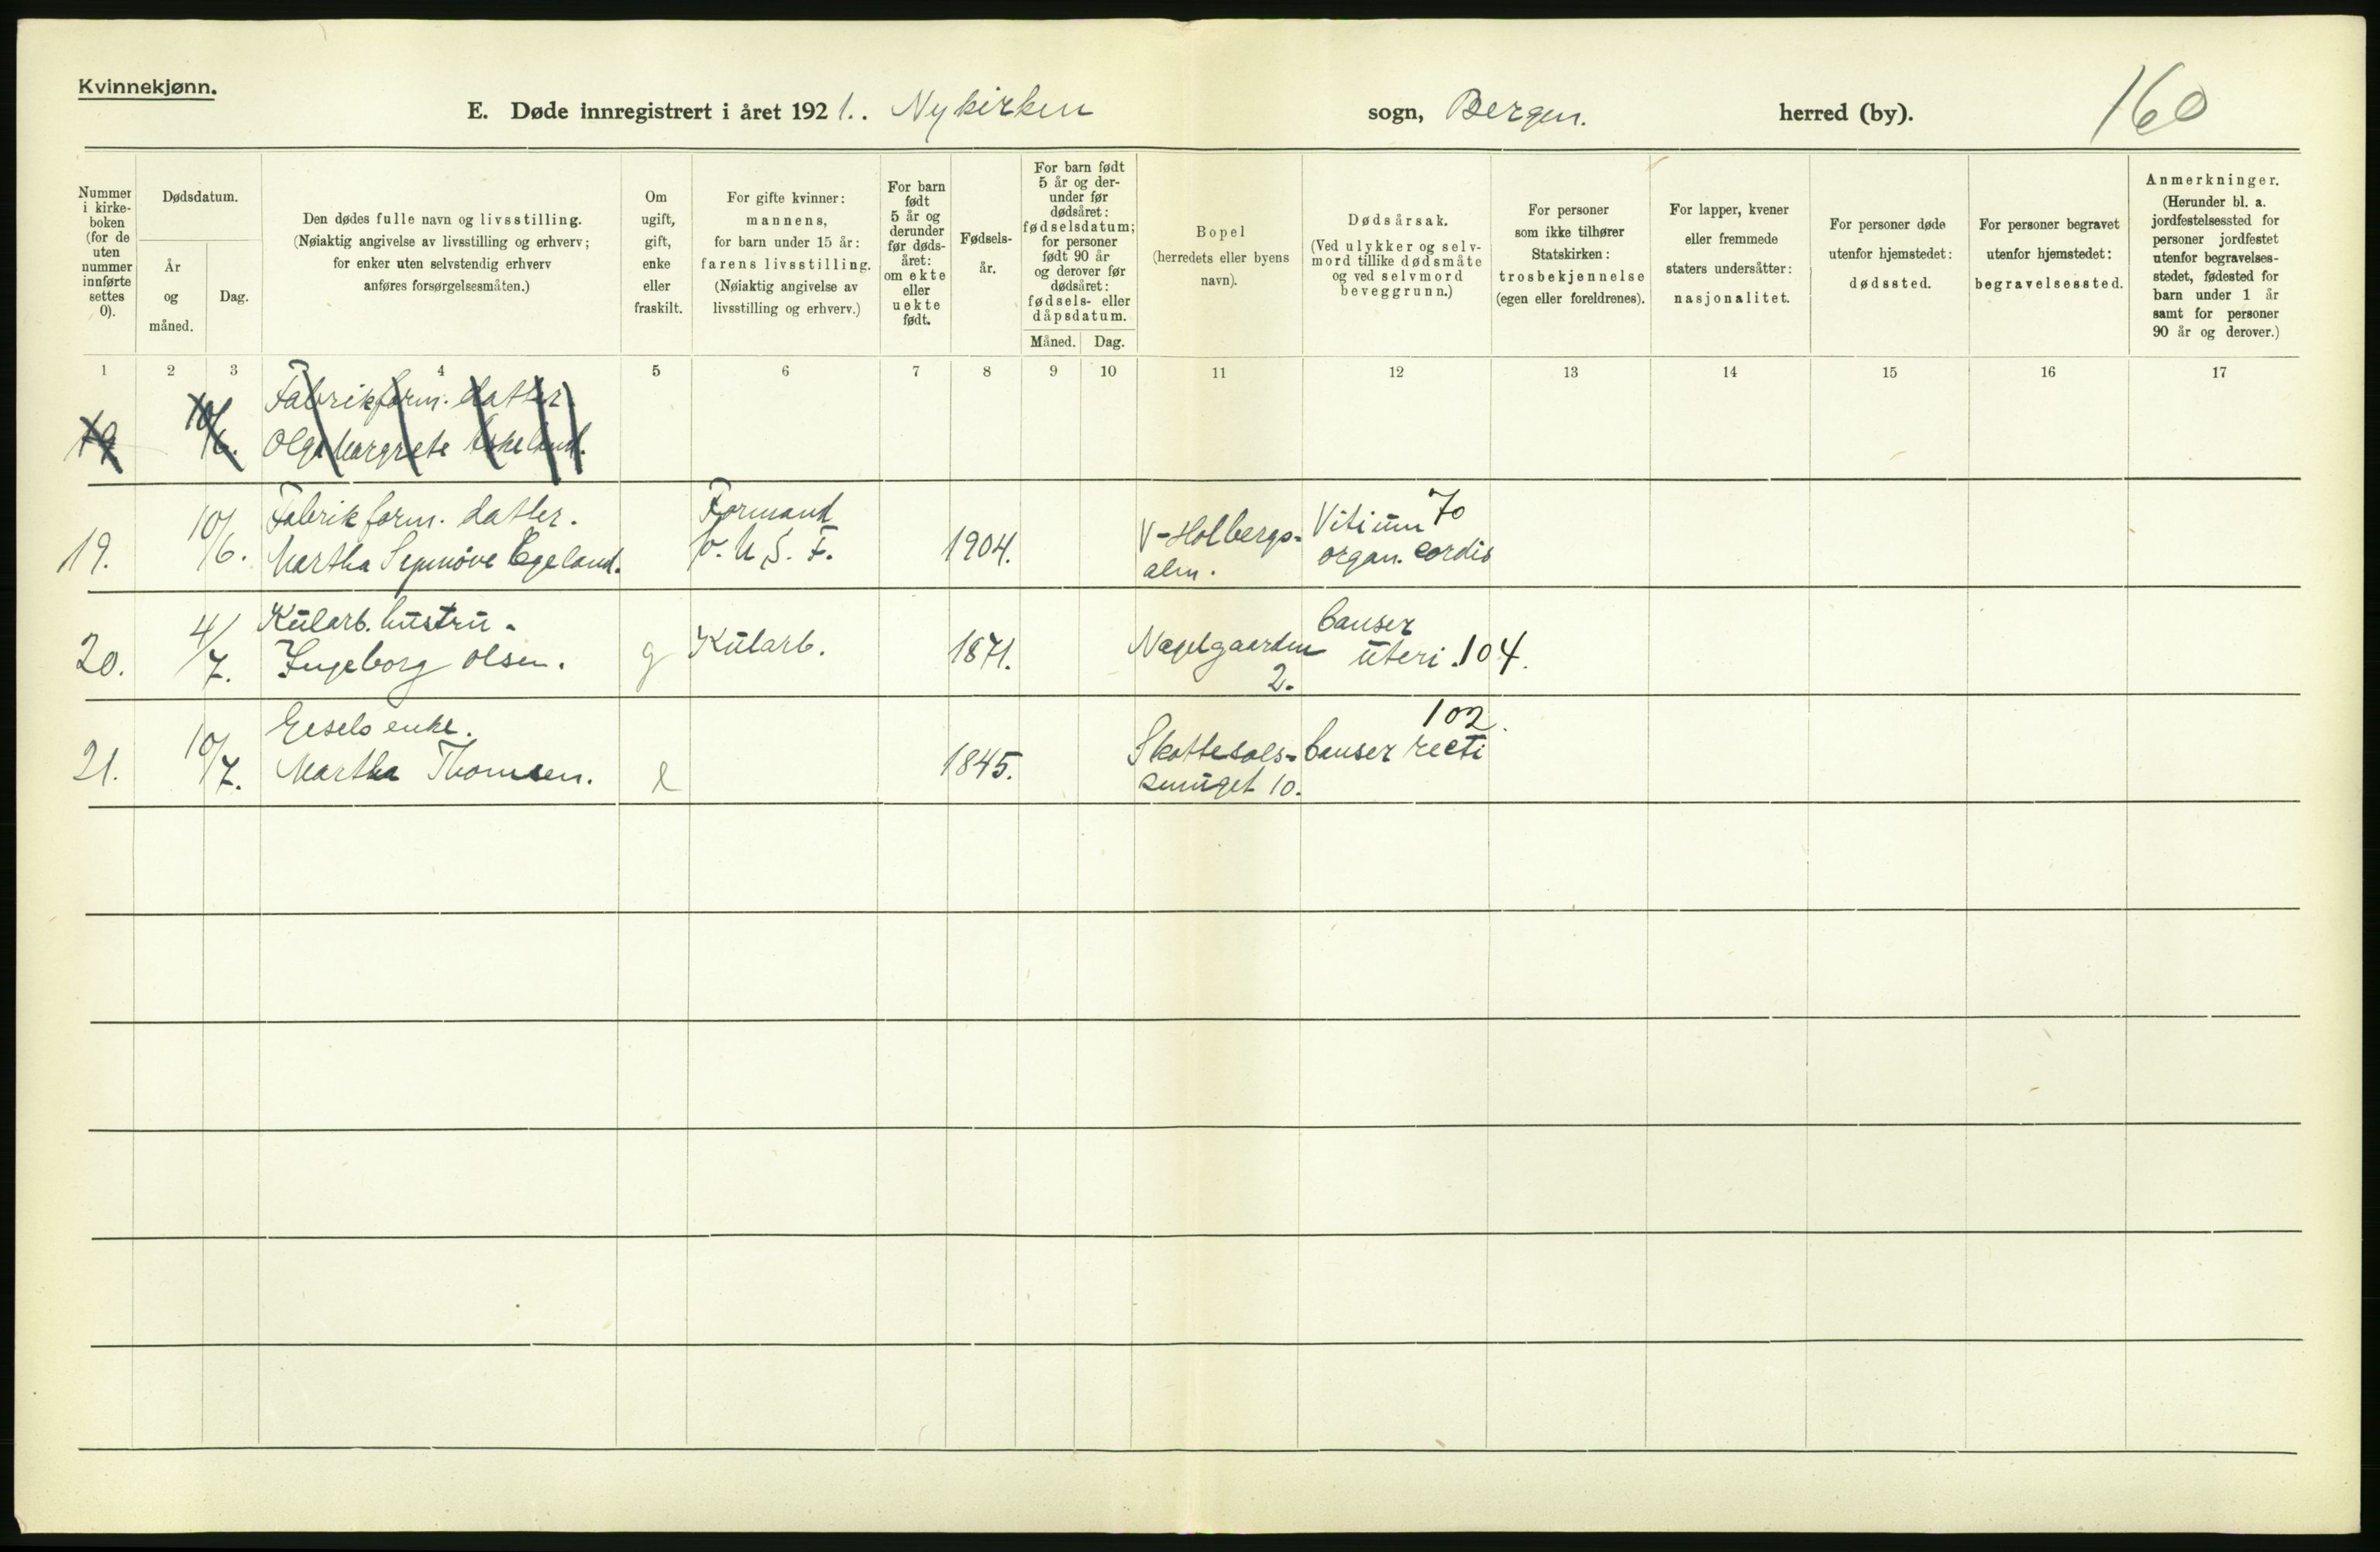 Kvinnekjønn.
E. Døde innregistrert i året 1921.. Nykirken sogn, Bergen. herred (by).
160
Nummer i kirke-boken (for de uten nummer innførte settes 0).
Dødsdatum.
År og måned.
Dag.
Den dødes fulle navn og livsstilling.
(Nøiaktig angivelse av livsstilling og erhverv;
for enker uten selvstendig erhverv
anføres forsørgelsesmåten.)
Om
ugift,
gift,
enke
eller
fraskilt.
For gifte kvinner:
mannens,
for barn under 15 år:
farens livsstilling.
(Nøiaktig angivelse av
livsstilling og erhverv.)
For barn
født
5 år og
derunder
før døds-
året:
om ekte
eller
uekte
født.
Fødsels-
år.
For barn født
5 år og der-
under før
dødsåret:
fødselsdatum;
for personer
født 90 år
og derover før
dødsåret:
fødsels- eller
dåpsdatum.
Måned. Dag.
Bopel
(herredets eller byens
navn).
Dødsårsak.
(Ved ulykker og selv-
mord tillike dødsmåte
og ved selvmord
beveggrunn.)
For personer
som ikke tilhører
Statskirken:
trosbekjennelse
(egen eller foreldrenes).
For lapper, kvener
eller fremmede
staters undersåtter:
nasjonalitet.
For personer døde
utenfor hjemstedet:
dødssted.
For personer begravet
utenfor hjemstedet:
begravelsessted.
Anmerkninger.
(Herunder bl. a.
jordfestelsessted for
personer jordfestet
utenfor begravelses-
stedet, fødested for
barn under 1 år
samt for personer
90 år og derover.)
1 2 3 4 5 6 7 8 9 10 11 12 13 14 15 16 17
Fabrikform. datter.
19 10/6. Olga Margrete
Fabrikform. datter. Formand Vitium 70
19. 10/6. Martha Synnöve Egeland. v. U. S. F. 1904. V-Holbergs- organ. cordis
alm.
Kularb. hustru. Canser
20. 4/7. Ingeborg Olsen. g Kularb. 1871. Nagelgaarden uteri. 104.
2.
enke. 102
21. 10/7. Martha Thomsen. e 1845. Skottesals- Canser recti
smuget 10.